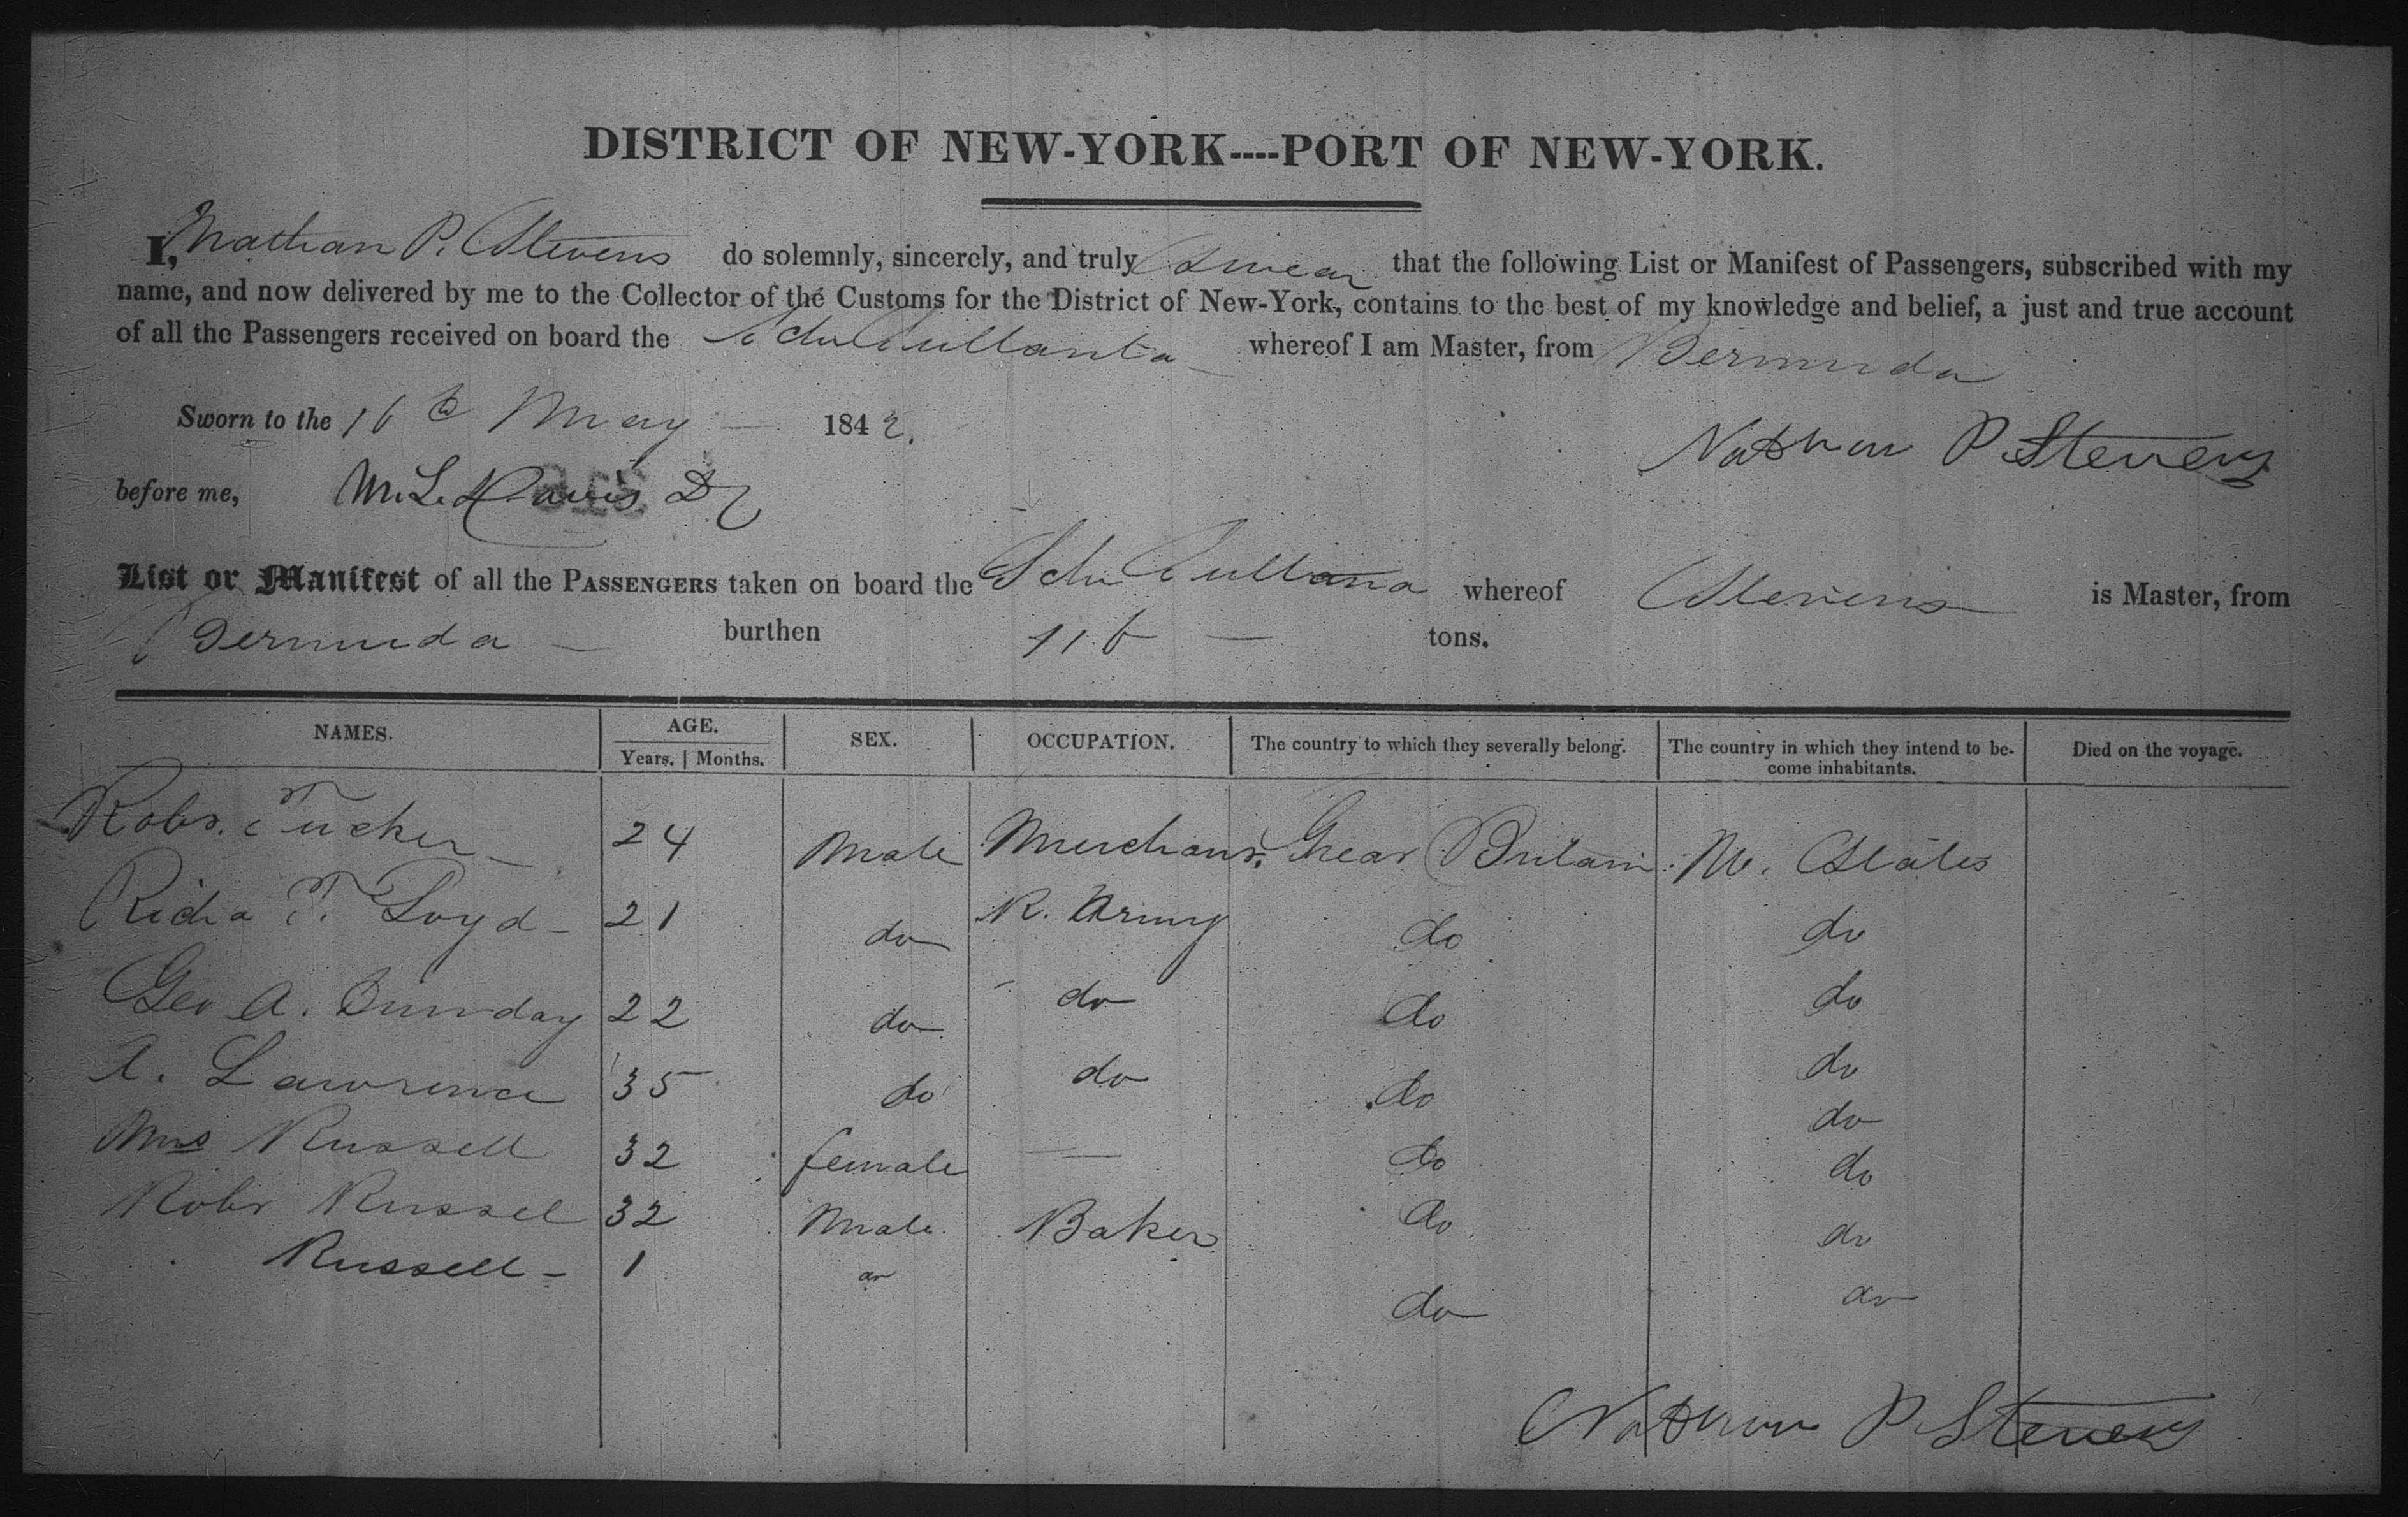 DISTRICT OF NEW-YORK----PORT OF NEW-YORK.
I, Nathan P. Stevens do solemnly, sincerely, and truly swear that the following List or Manifest of Passengers, subscribed with my
name, and now delivered by me to the Collector of the Customs for the District of New-York, contains to the best of my knowledge and belief, a just and true account
of all the Passengers received on board the Schr whereof I am Master, from Bermuda
Sworn to the 16th May 1842.
Nathan P Stevens
before me, M. L. Davis
List or Manifest of all the PASSENGERS taken on board the Schr Sultana whereof Stevens is Master, from
Bermuda burthen 116 tons.
NAMES. AGE. SEX. OCCUPATION. The country to which they severally belong. The country in which they intend to be- Died on the voyage.
Years. Months. come inhabitants.
Robt. Tucker 24 Male Merchant Great Britain States
Richd T. Loyd 21 do R. Army do do
Geo A. 22 do do do do
A. Lawrence 35 do do do do
Mrs Russell 32 female — do do
Robt Russel 32 Male Baker do do
Russell 1 do do do
do
Nathan P Stevens